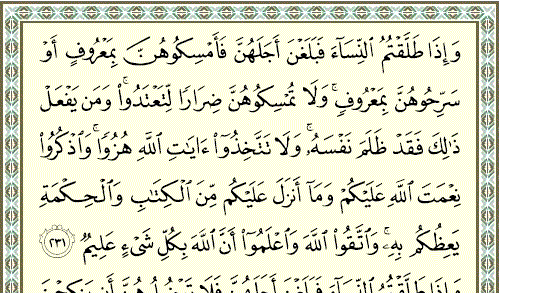 وَإِذَا طَلَّقْتُمُ ٱلنِّسَآءَ فَبَلَغْنَ أَجَلَهُنَّ فَأَمْسِكُوهُنَّ بِمَعْرُوفٍ أَوْ
سَرِّحُوهُنَّ بِمَعْرُوفٍۚ وَلَا تُمْسِكُوهُنَّ ضِرَارًا لِّتَعْتَدُوا۟ۚ وَمَن يَفْعَلْ
ذَٰلِكَ فَقَدْ ظَلَمَ نَفْسَهُۥۚ وَلَا تَتَّخِذُوٓا۟ ءَايَٰتِ ٱللَّهِ هُزُوًاۚ وَٱذْكُرُوا۟
نِعْمَتَ ٱللَّهِ عَلَيْكُمْ وَمَآ أَنزَلَ عَلَيْكُم مِّنَ ٱلْكِتَٰبِ وَٱلْحِكْمَةِ
يَعِظُكُم بِهِۦۚ وَٱتَّقُوا۟ ٱللَّهَ وَٱعْلَمُوٓا۟ أَنَّ ٱللَّهَ بِكُلِّ شَىْءٍ عَلِيمٌ ٢٣١
وَإِذَا طَلَّقْتُمُ ٱلنِّسَآءَ فَبَلَغْنَ أَجَلَهُنَّ فَلَا تَعْضُلُوهُنَّ أَن يَنكِحْنَ